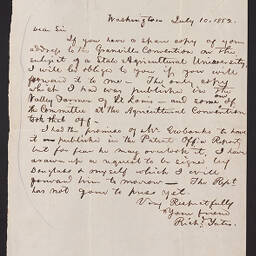 Washington July 10. 1852.
Dear Sir
If you have a spare copy of your
address to the Granville Convention on the
subject of a State Agricultural University
I will be obliged to you if you will
forward it to me — The only copy
which I had was published in the
Valley Farmer of St Louis — and some of
the Committee at the Agricultural Convention
took that off —
I had the promise of Mr Ewbanks to have
it published in the Patent Office Report,
but for fear he may overlook it, I have
drawn up a request to be signed by
Douglass & myself which I will
forward him to morrow — The Rept.
has not gone to press yet.
Very Respectfully
Your friend
Richd. Yates.